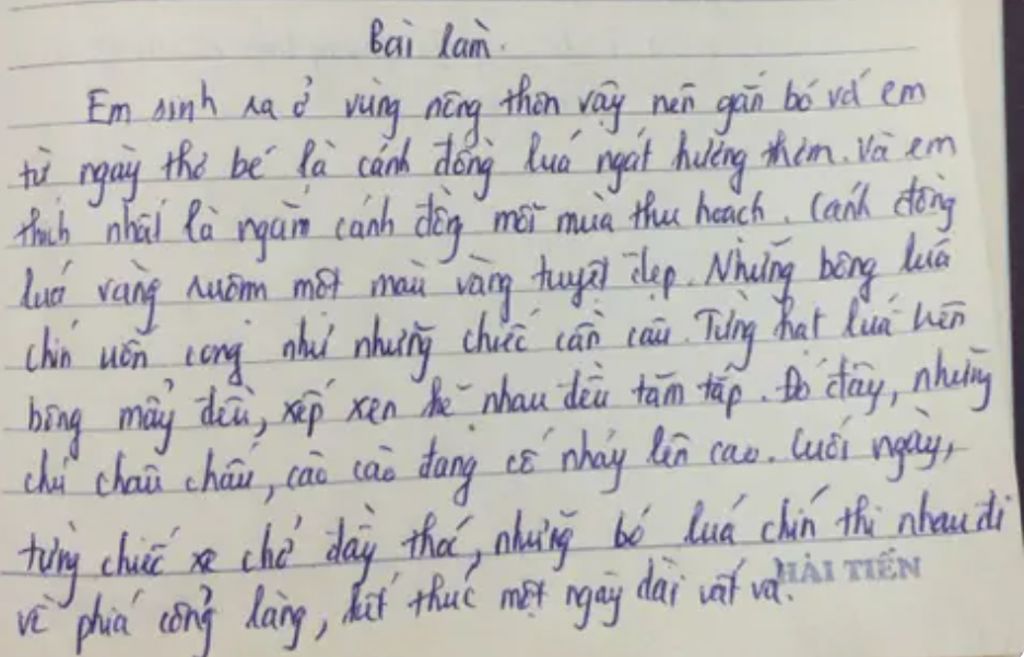 Bài làm.
Em sinh ra ở vùng nông thôn vậy nên gắn bó với em
từ ngày thơ bé là cánh đồng lúa ngát hương thơm. Và em
thích nhất là ngắm cánh đồng mỗi mùa thu hoạch. Cánh đồng
lúa vàng ruộm một màu vàng tuyệt đẹp. Những bông lúa
chín uốn cong như những chiếc cần câu. Từng hạt lúa trên
bông mẩy đều, xếp xen kẽ nhau đều tăm tắp. Đó đây, những
chú châu chấu, cào cào đang cố nhảy lên cao. Cuối ngày,
từng chiếc xe chở đầy thóc, những bó lúa chín thi nhau đi
về phía cổng làng, kết thúc một ngày dài vất vả.
HẢI TIẾN